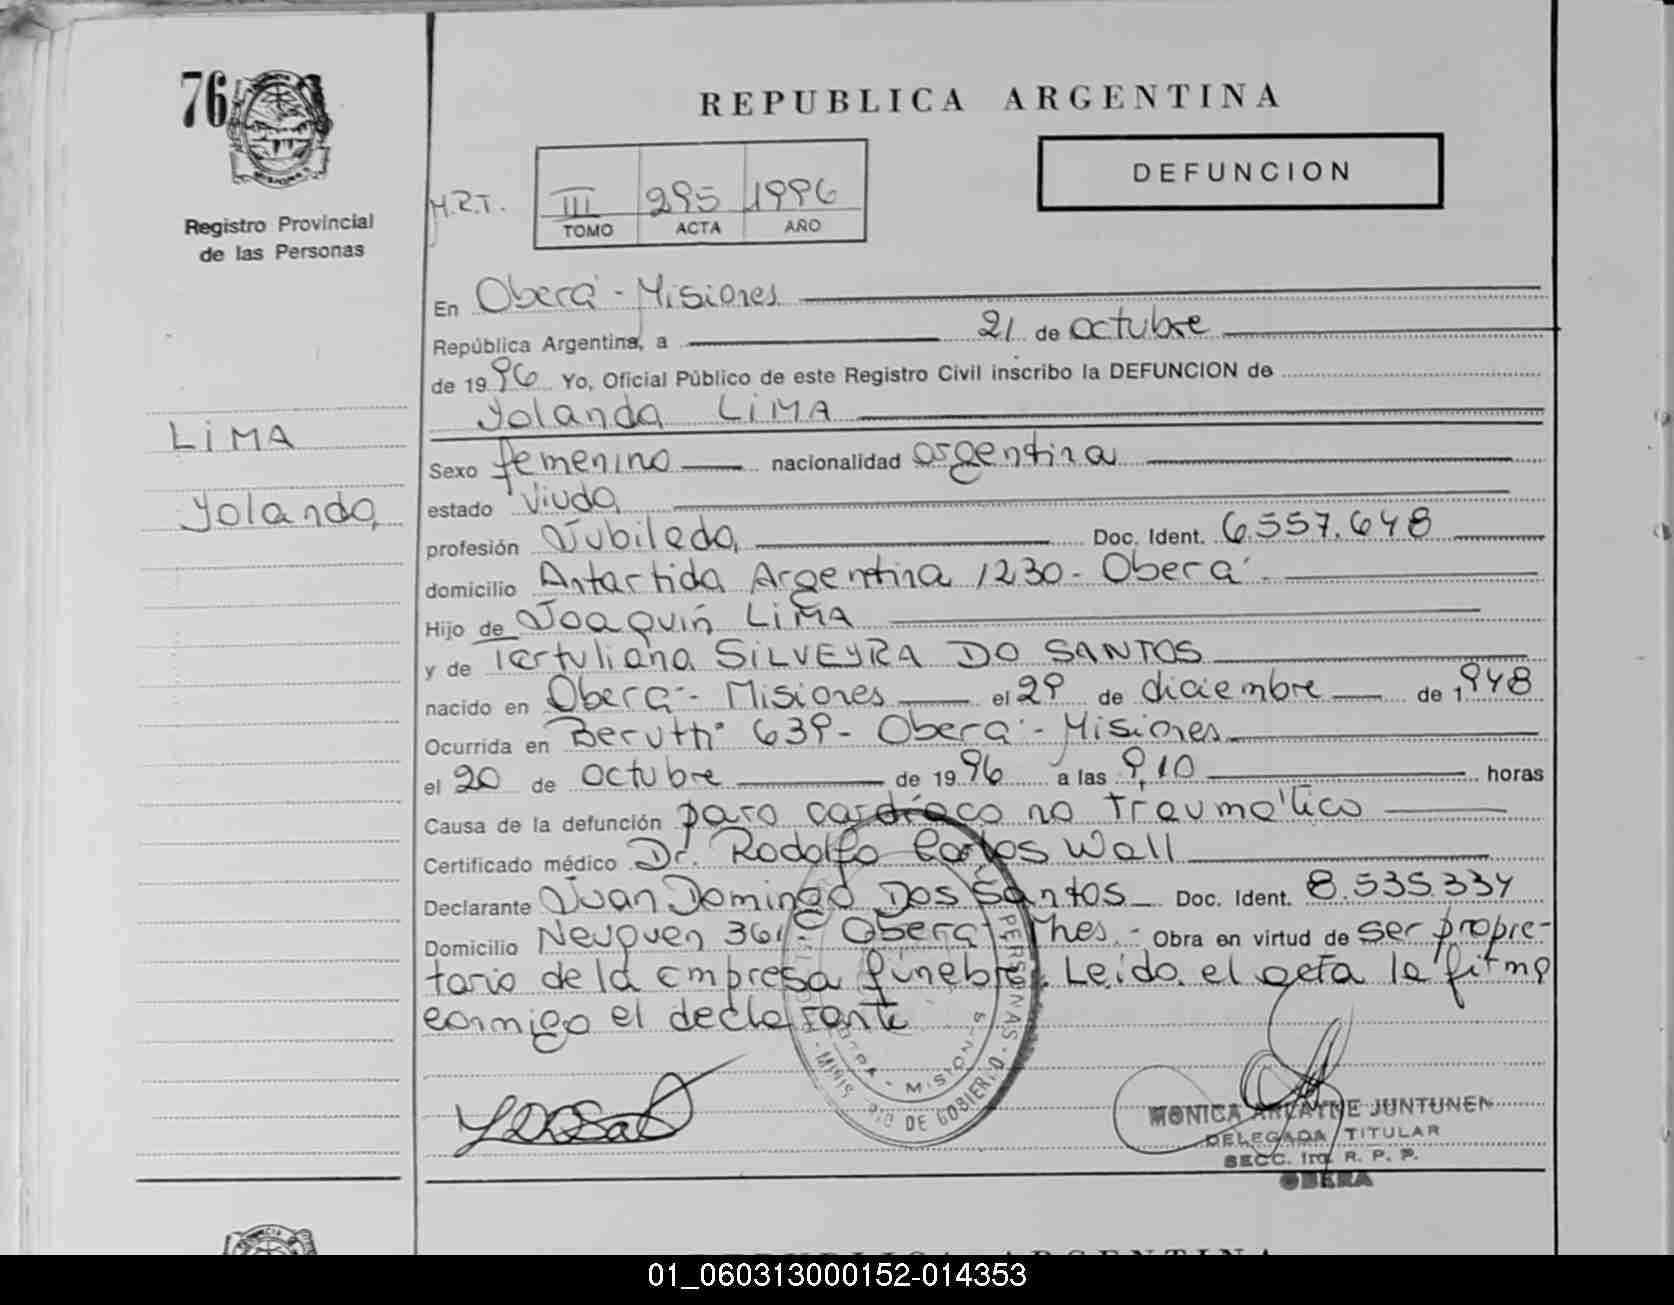 76
Registro Provincial
de las Personas
REPUBLICA ARGENTINA
DEFUNCION
III 295 1996
TOMO ACTA AÑO
En Oberá - Misiones
República Argentina, a 21 de octubre
de 1996 Yo, Oficial Público de este Registro Civil inscribo la DEFUNCION de
Yolanda LiMA
LiMA
Yolanda
Sexo femenino nacionalidad argentina
estado Viuda
profesión Jubilada Doc. Ident. 6.557.648
domicilio Antartida Argentina 1230 - Oberá -
Hijo de Joaquín LiMA
y de Tertuliana SiLVEYRA DO SANTOS
nacido en Oberá - Misiones el 29 de diciembre de 1948
Ocurrida en Berutti 639 - Oberá - Misiones
el 20 de octubre de 1996 a las 9,10 horas
Causa de la defunción paro cardíaco no traumático
Certificado médico Dr. Rodolfo Carlos Wall
Declarante Juan Domingo Dos Santos Doc. Ident. 8.535.334
Domicilio Neuquen 361 - Oberá - Mnes. - Obra en virtud de ser propie-
tario de la empresa funebre. Leida el acta la firma
conmigo el declarante
PERSONAS - MINISTERIO DE GOBIERNO
OBERA - MISIONES
MONICA ARLAYNE JUNTUNEN
DELEGADA TITULAR
SECC. 1ra. R. P. P.
OBERA
REPUBLICA ARGENTINA
01_060313000152-014353